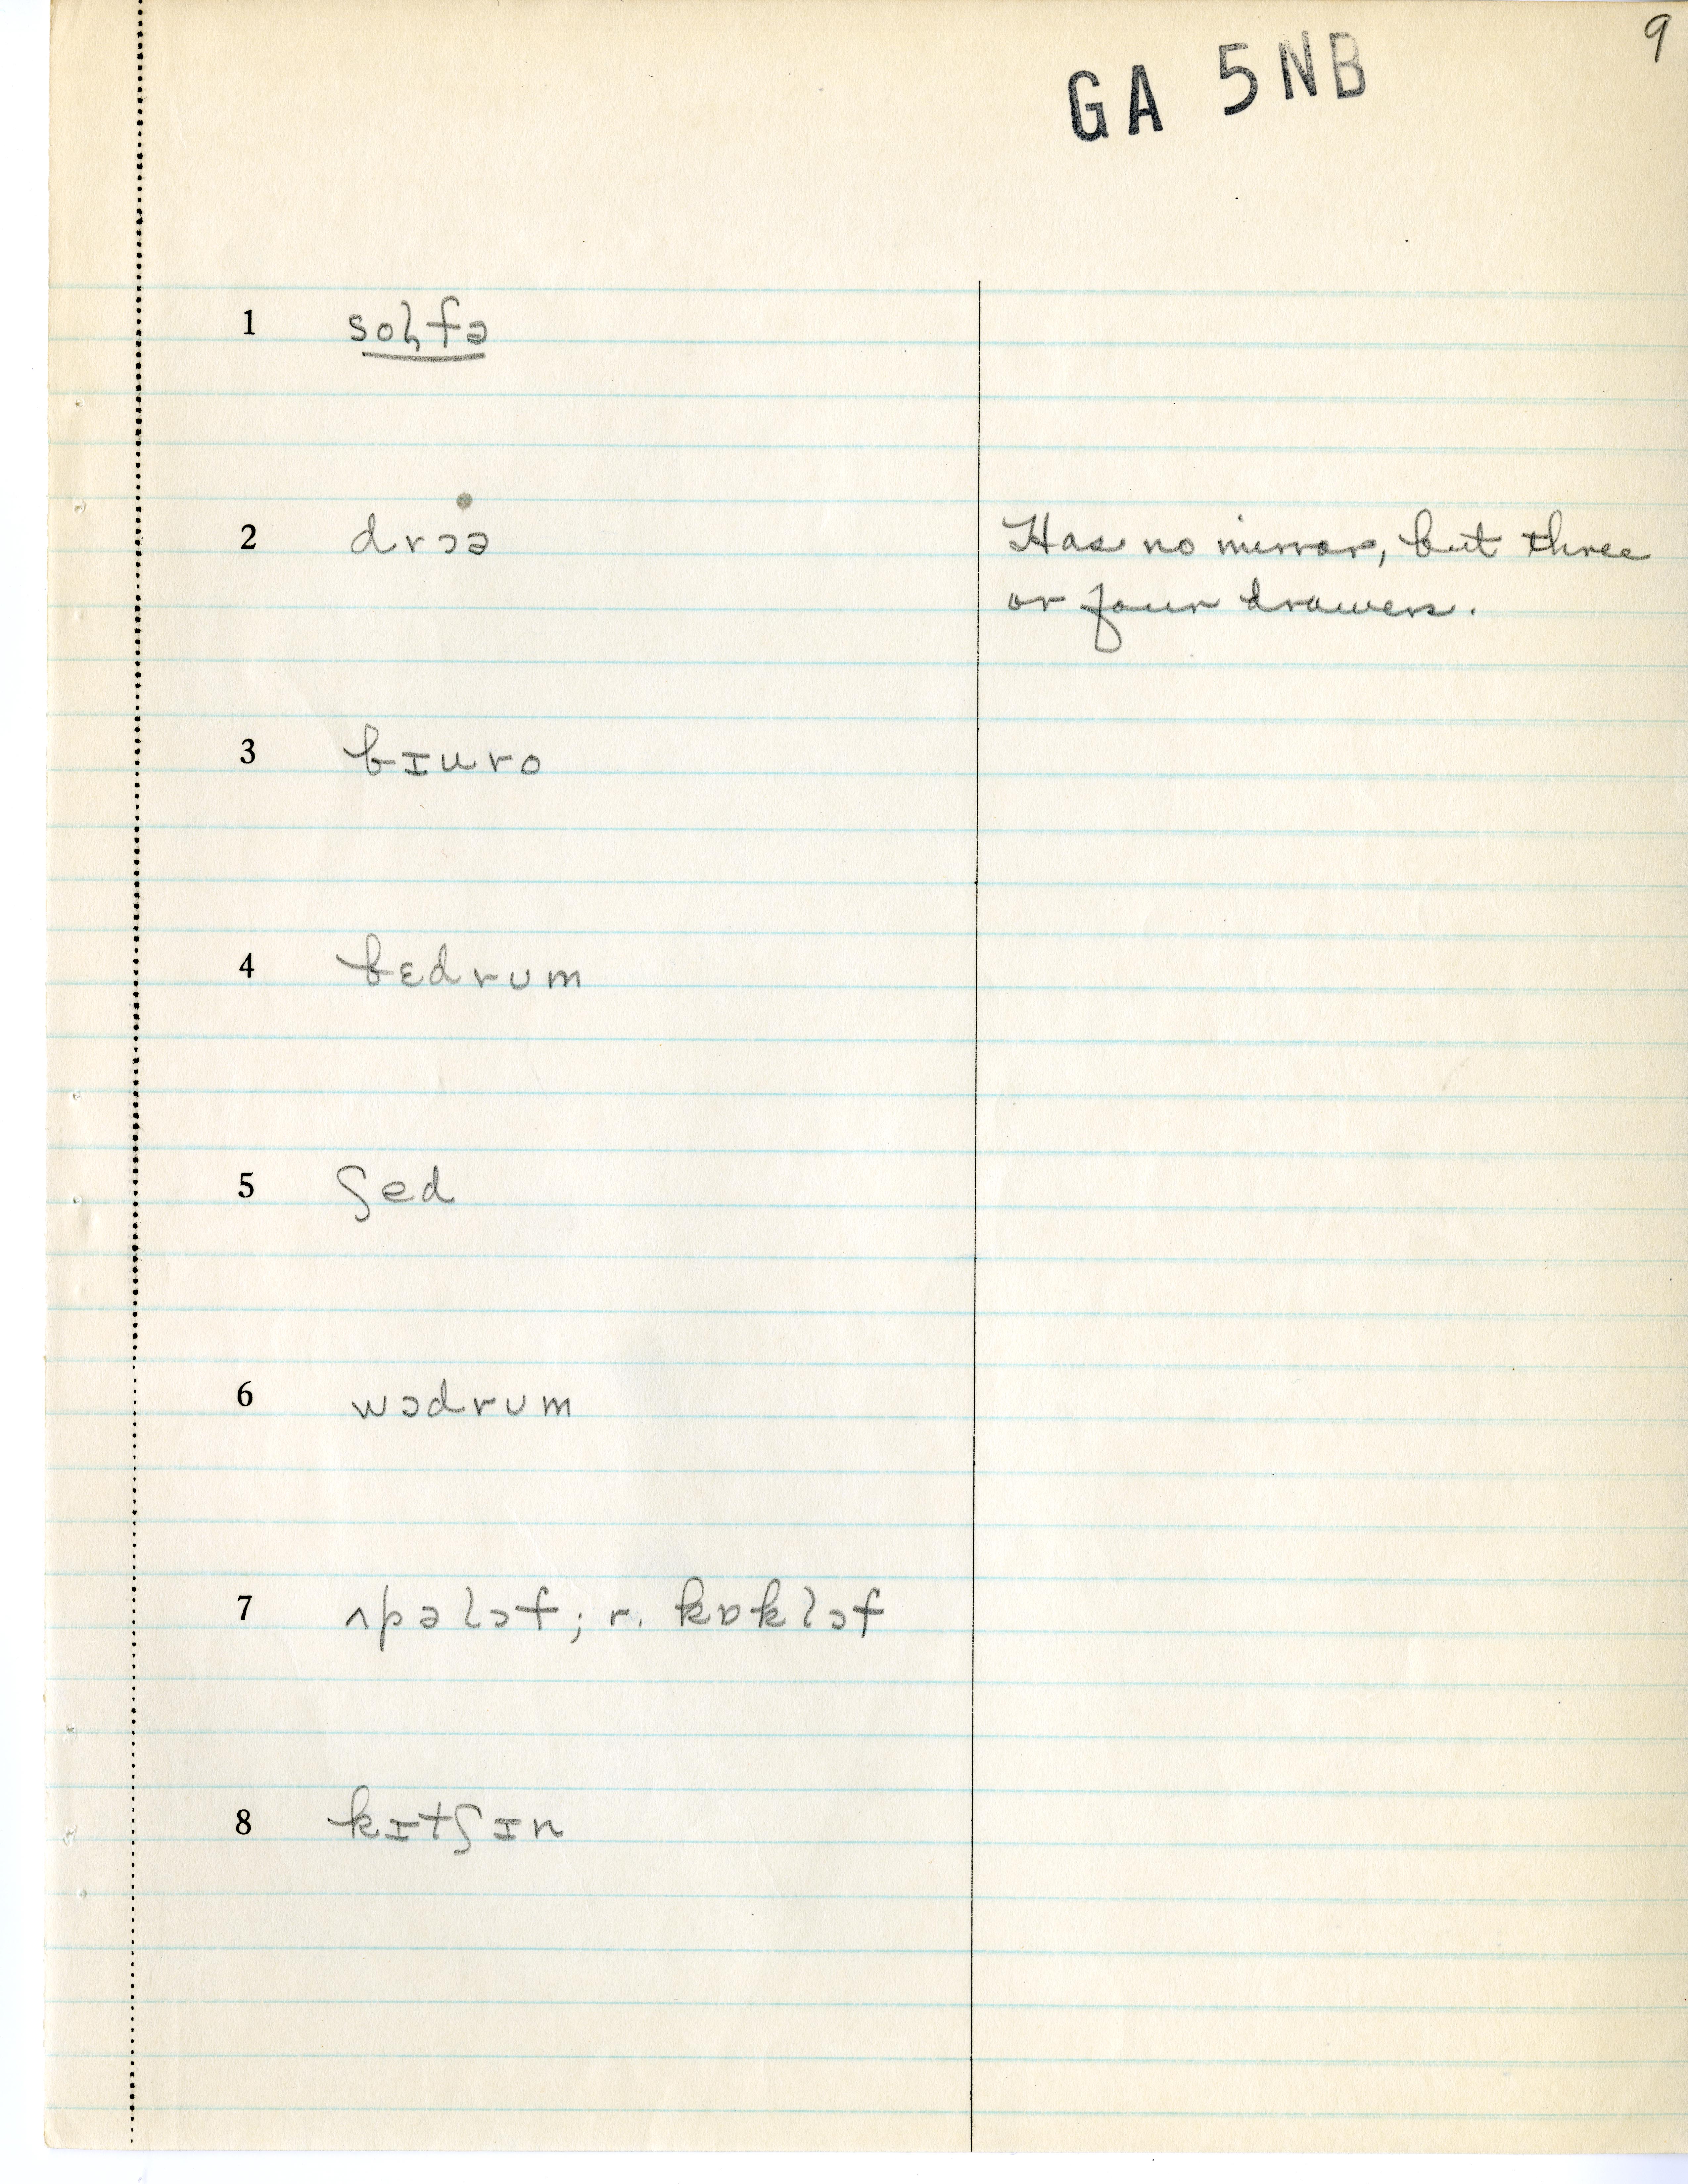 9
GA 5NB
1 sol̥fə
2 drɔə Has no mirror, but three
or four drawers.
3 bɪuro
4 bɛdrʊm
5 ʃed
6 wɔdrʊm
7 ʌpəlɔf; r. kɒklɔf
8 kɪtʃɪn